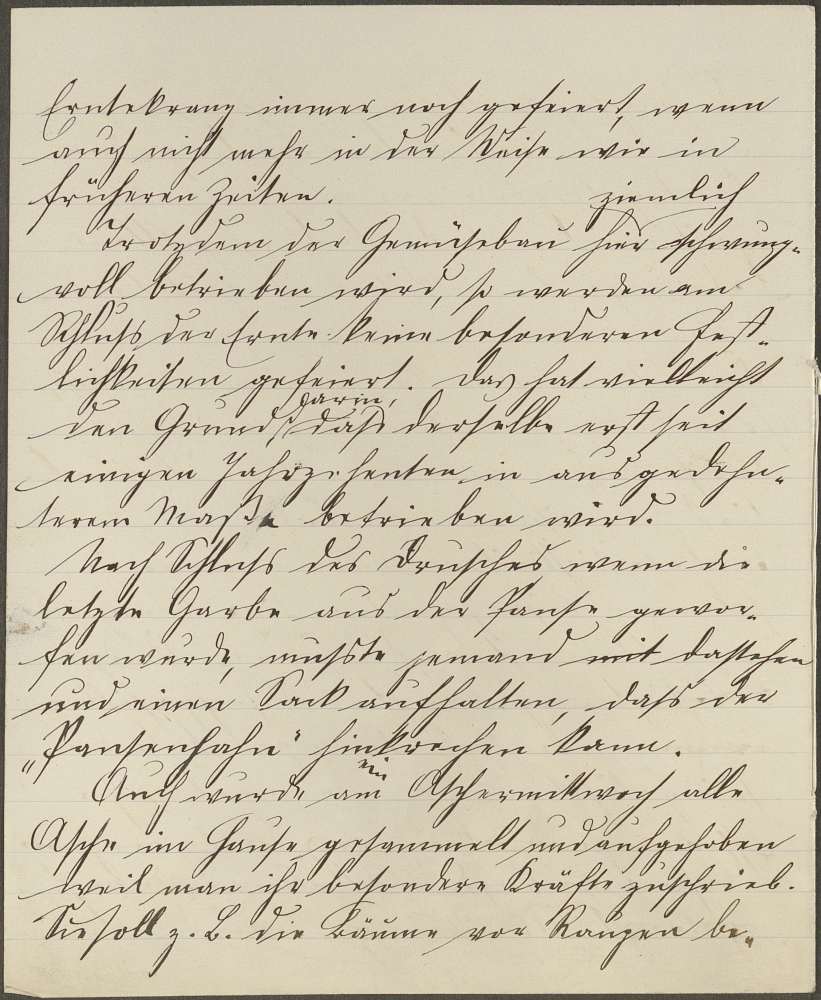 Erntekranz immer noch gefeiert, wenn
auch nicht mehr in der Weise wie in
früheren Zeiten.
ziemlich
Trotzdem der Gemüsebau hier schwung-
voll betrieben wird, so werden am
Schluss der Ernte keine besonderen Fest-
lichkeiten gefeiert. Das hat vielleicht
darin,
den Grund dass derselbe erst seit
einigen Jahrzehnten in ausgedehn-
terem Maße betrieben wird.
Nach Schluss des Drusches wenn die
letzte Garbe aus der Panse gewor-
fen wurde, musste jemand mit dastehen
und einen Sack aufhalten, dass der
„Pansenhahn" hinkrochen kann.
Auch wurde am Aschermittwoch alle
Asche im Hause gesammelt und aufgehoben
weil man ihr besondere Kräfte zuschrieb.
Sie soll z. B. die Bäume vor Raupen be-